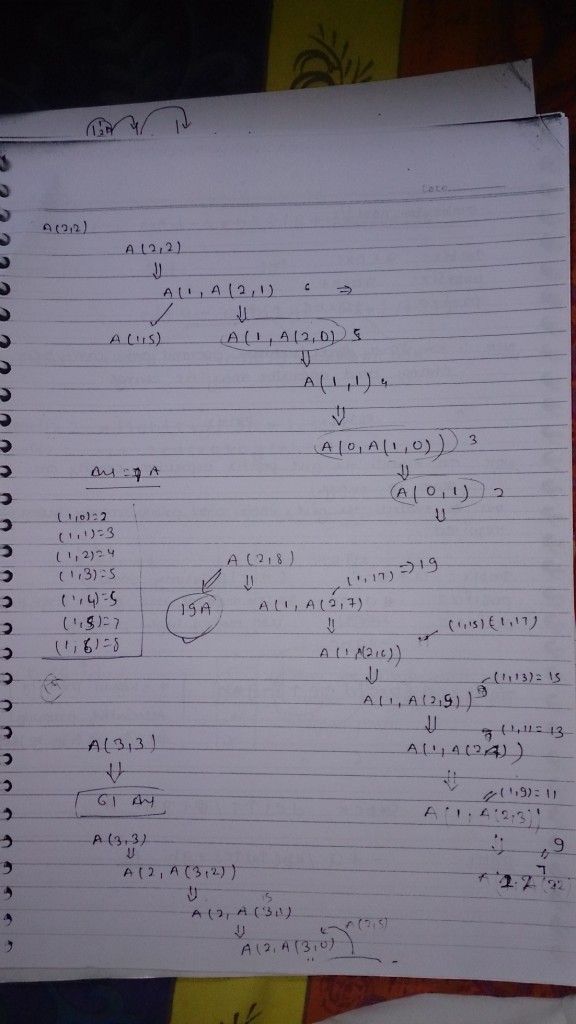 Date
A(2,2)
A(2,2)
⇓
A(1, A(2,1) 6 ⇒
⇓
A(1,5) A(1, A(2,0) 5
⇓
A(1,1) 4
⇓
A(0, A(1,0)) 3
⇓
A(0,1) 2
⇓
(1,0)=2
(1,1)=3
(1,2)=4
(1,3)=5
(1,4)=5
(1,5)=7
(1,6)=8
A(2,8)
⇓ (1,17) ⇒ 19
19A A(1, A(2,7)
⇓ (1,15) (1,17)
A(1 A(2,6))
⇓ (1,13)=15
A(1, A(2,5))
⇓ (1,11=13
A(1, A(2,4))
⇓ (1,9)=11
A(1, A(2,3))
9
7
A(3,3)
⇓
61
A(3,3)
⇓
A(2, A(3,2))
⇓
A(2, A(3,1)
⇓ A(2,5)
A(2, A(3,0)